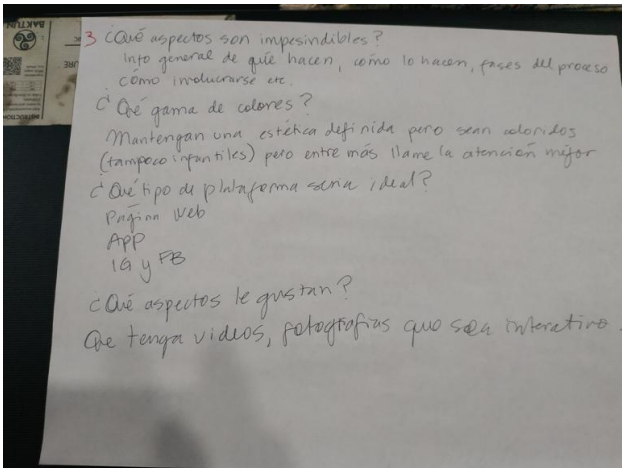 BAKTUN
3 ¿Qué aspectos son impesindibles?
Info general de que hacen, cómo lo hacen, fases del proceso
cómo involucrarse etc.
¿Qué gama de colores?
Mantengan una estética definida pero sean coloridos
(tampoco infantiles) pero entre más llame la atención mejor
¿Qué tipo de plataforma seria ideal?
Página Web
App
IG y FB
¿Qué aspectos le gustan?
Que tenga videos, fotografias que sea interativo.